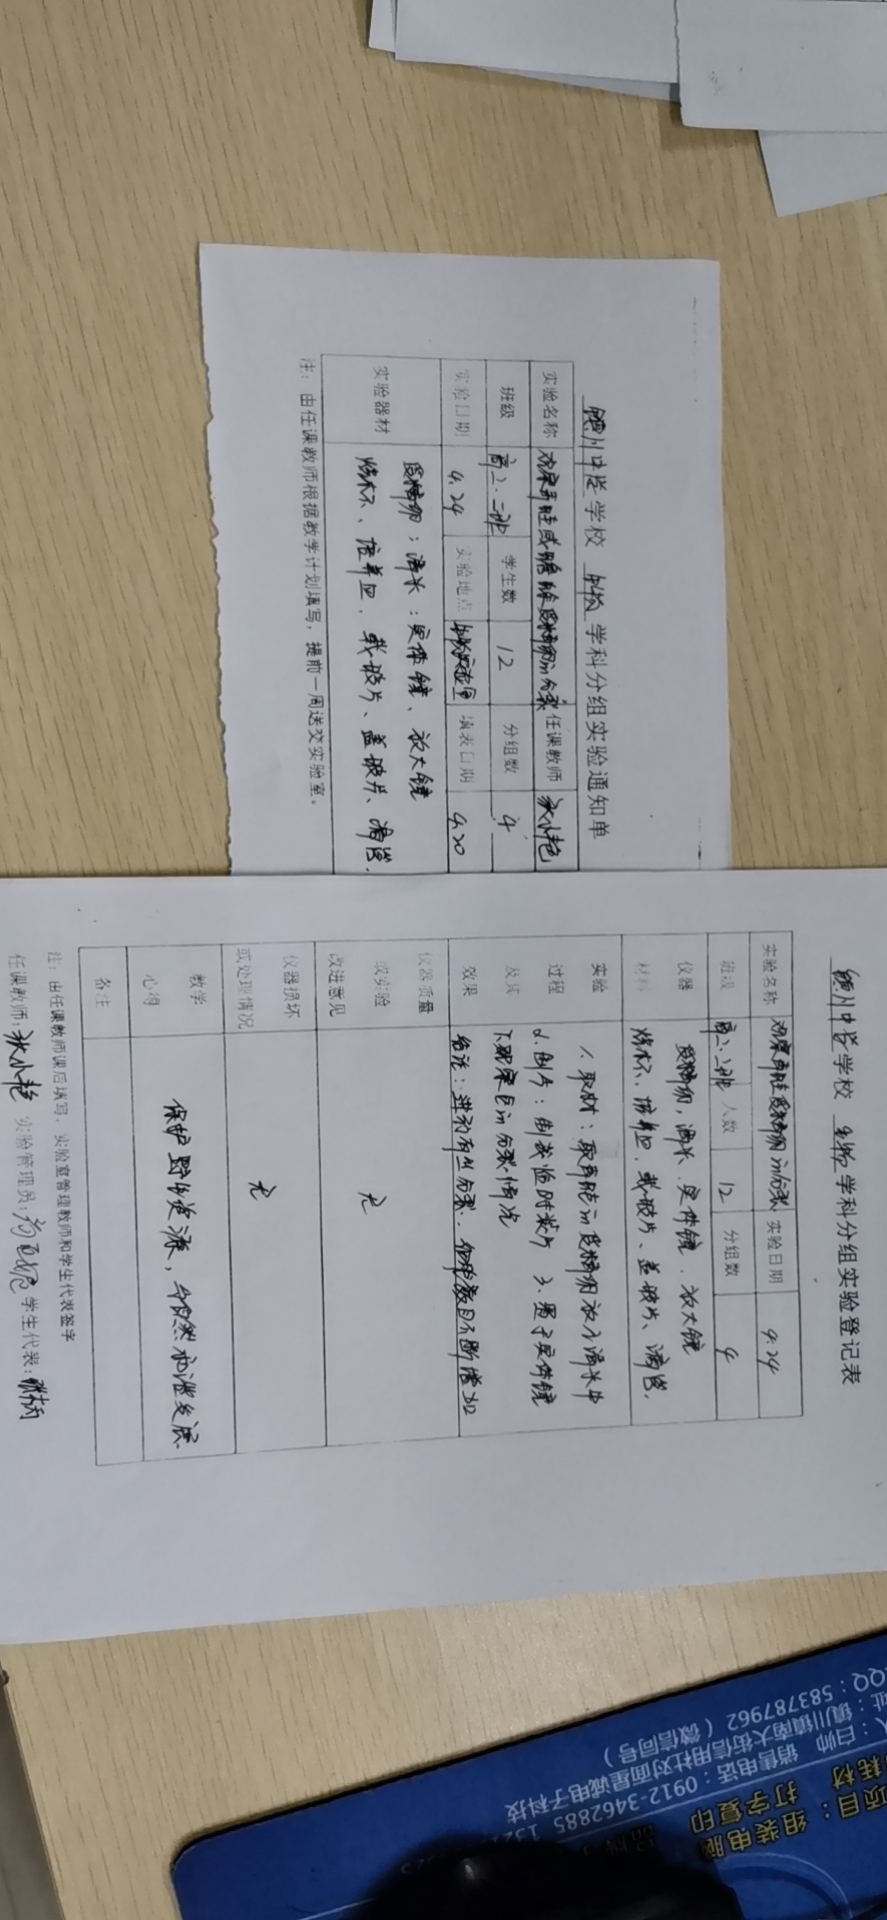 镇川中学学校 生物 学科分组实验通知单
实验名称 观察青蛙或蟾蜍受精卵的分裂 任课教师
班级 高二.二班 学生数 12 分组数 4
实验日期 4.24 实验地点 生物实验室 填表日期 4.20
实验器材 受精卵;清水;实体镜、放大镜
烧杯、培养皿、载玻片、盖玻片、滴管.
注:由任课教师根据教学计划填写,提前一周送交实验室。
镇川中学学校 生物 学科分组实验登记表
实验名称 观察青蛙受精卵的分裂 实验日期 4.24
班级 高二.二班 人数 12 分组数 4
仪器材料 受精卵,清水、实体镜、放大镜
烧杯、培养皿、载玻片、盖玻片、滴管.
实验过程及其效果
1、取材:取青蛙的受精卵放入清水中
2、制片:制成临时装片 3、置于实体镜
下观察它的分裂情况
结论:进行有丝分裂、细胞数目不断增加
仪器质量或实验改进意见 无
仪器损坏或处理情况 无
教学心得 保护野生资源,与自然和谐发展.
备注
注:由任课教师课后填写,实验室管理教师和学生代表签字
任课教师: 实验管理员: 学生代表:
项目:组装电脑
打字复印
白帅 销售电话:0912-3462885
镇川镇南大街信用社对面星诚电子科技
QQ:583787962(微信同号)